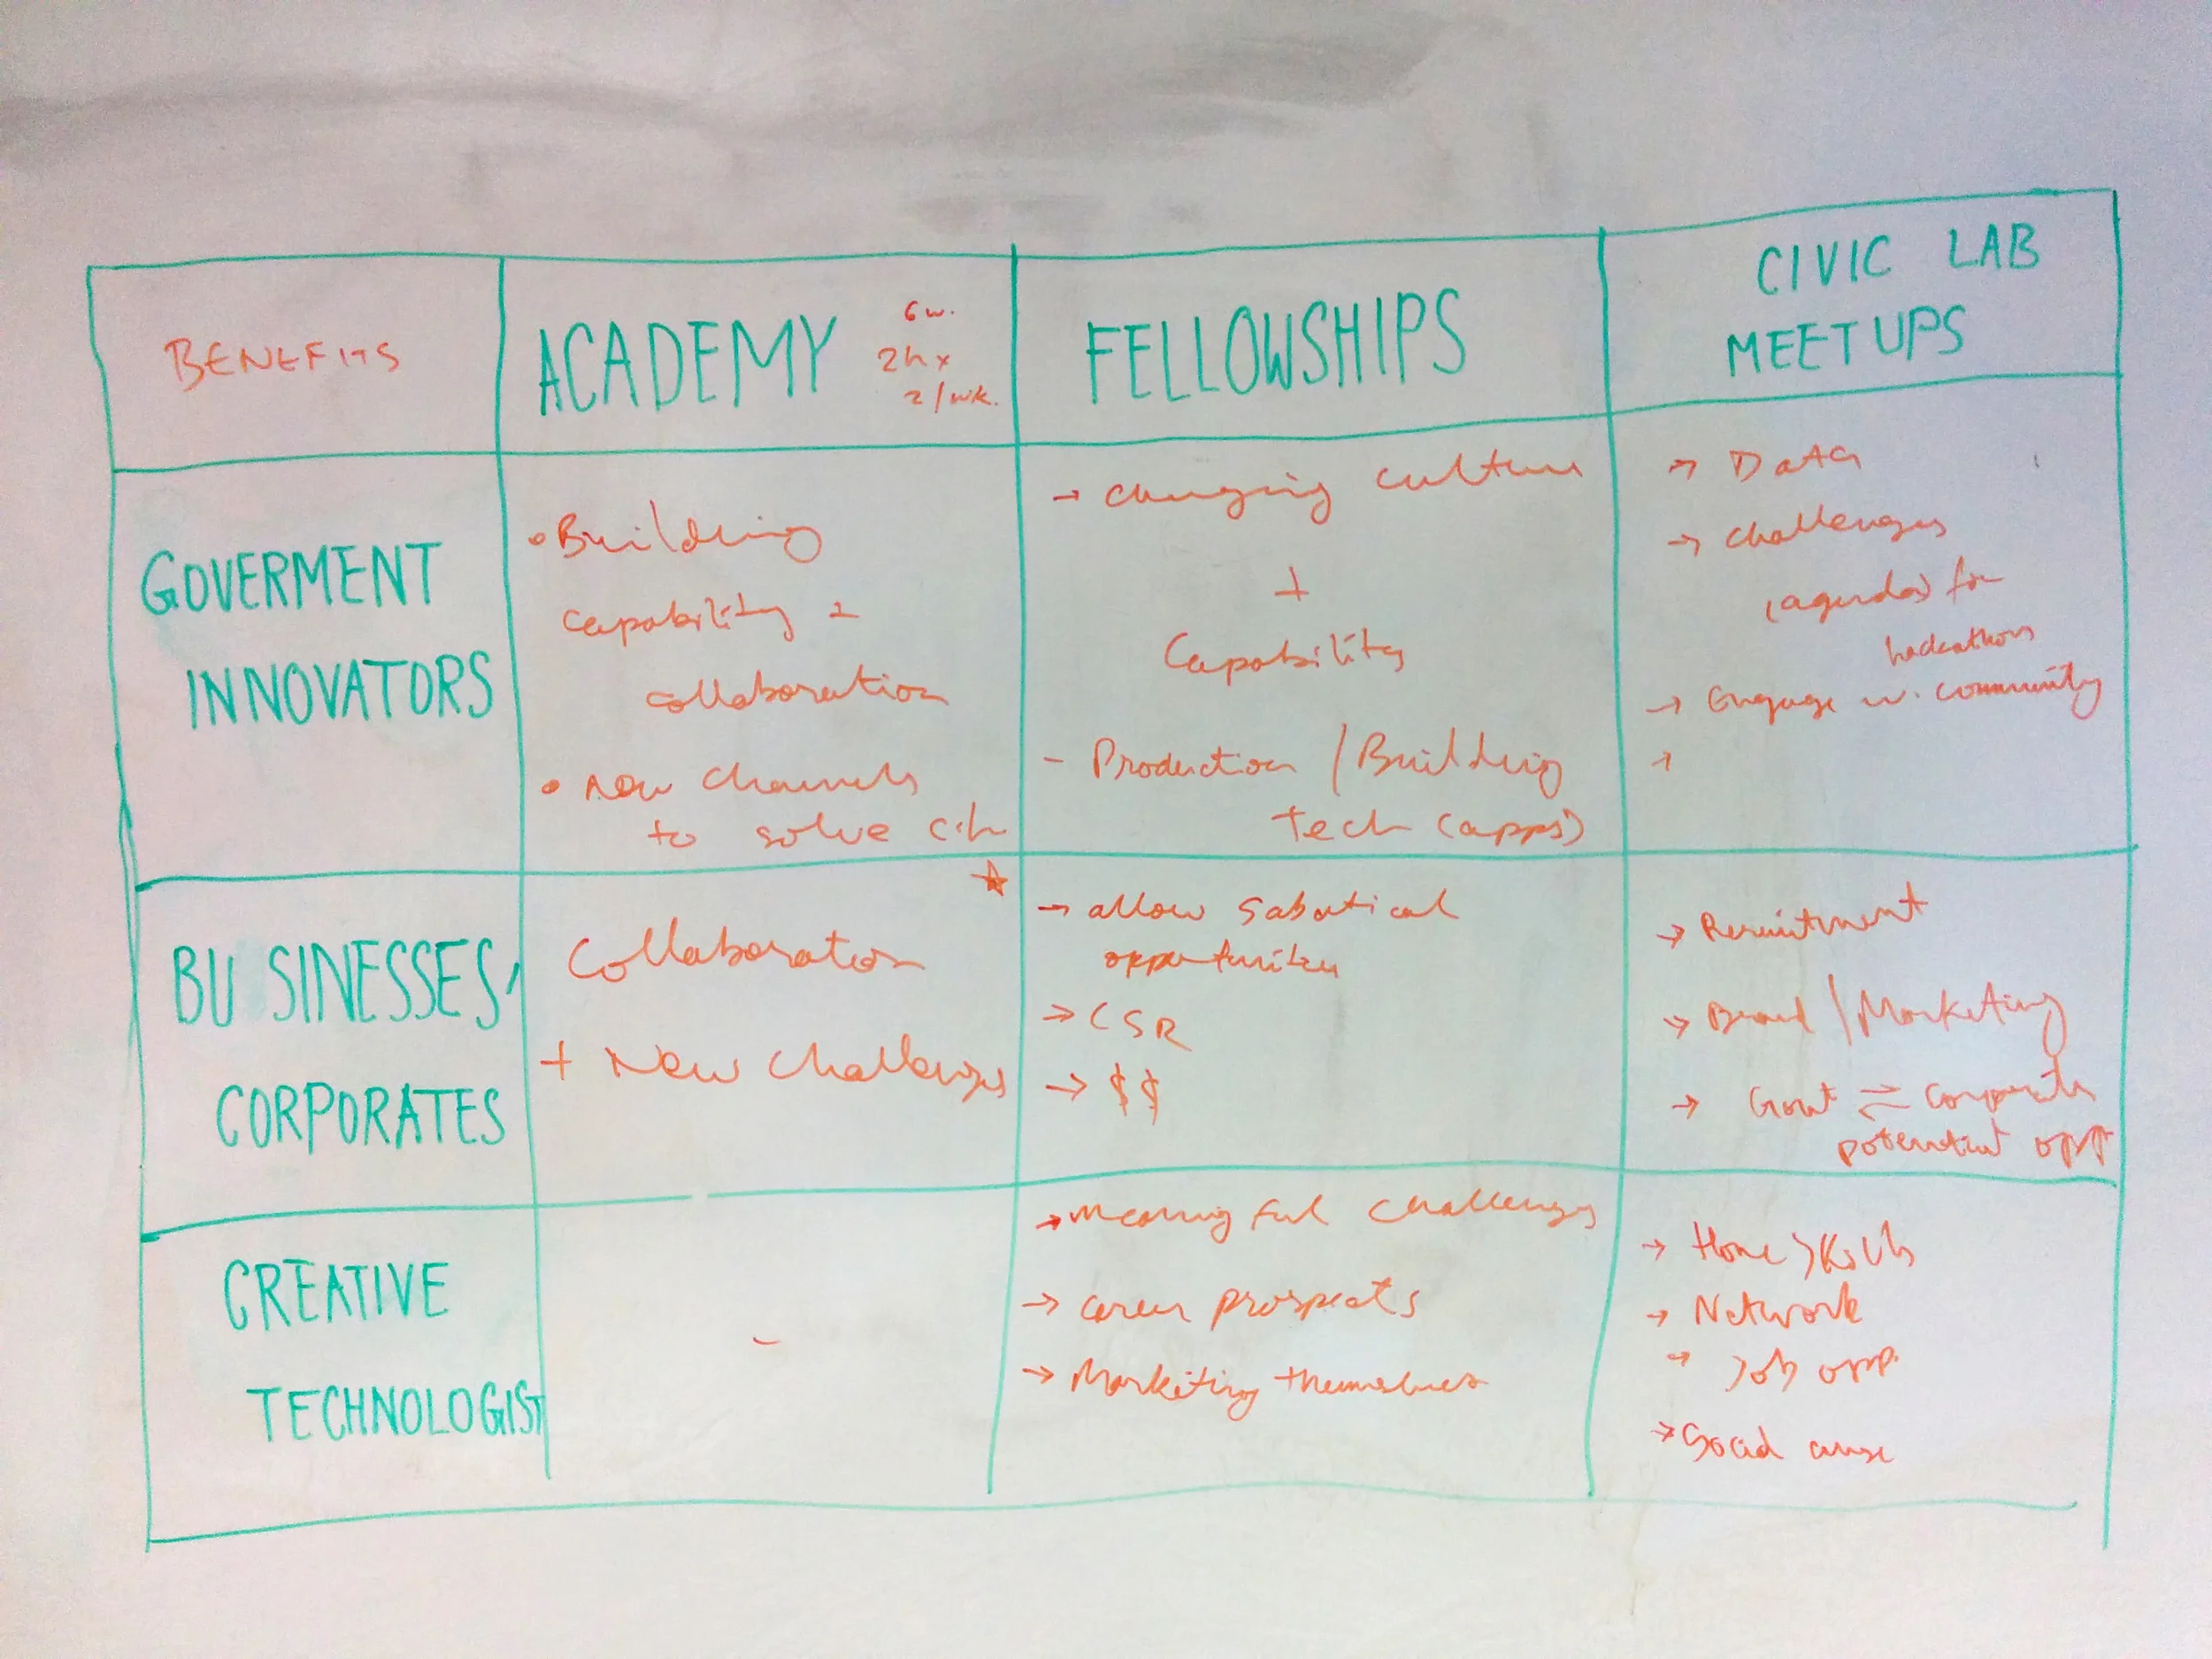 BENEFITS
ACADEMY
6w.
2h x
2/wk.
FELLOWSHIPS
CIVIC LAB
MEETUPS
GOVERMENT
INNOVATORS
• Building
capability +
collaboration
• New channels
to solve
→ changing culture
+
Capability
- Production / Building
tech (apps)
→ Data
→ challenges
(agenda) for
hackathons
→ Engage w. community
→
BUSINESSES/
CORPORATES
Collaboration
+ New challenges
→ allow sabatical
opportunities
→ CSR
→ $$
→ Recruitment
→ Brand / Marketing
→ Govt ⇌ Corporate
potential opp
CREATIVE
TECHNOLOGIST
-
→ Meaningful challenges
→ career prospects
→ Marketing themselves
→ Hone skills
→ Network
→ Job opp.
→ Social cause